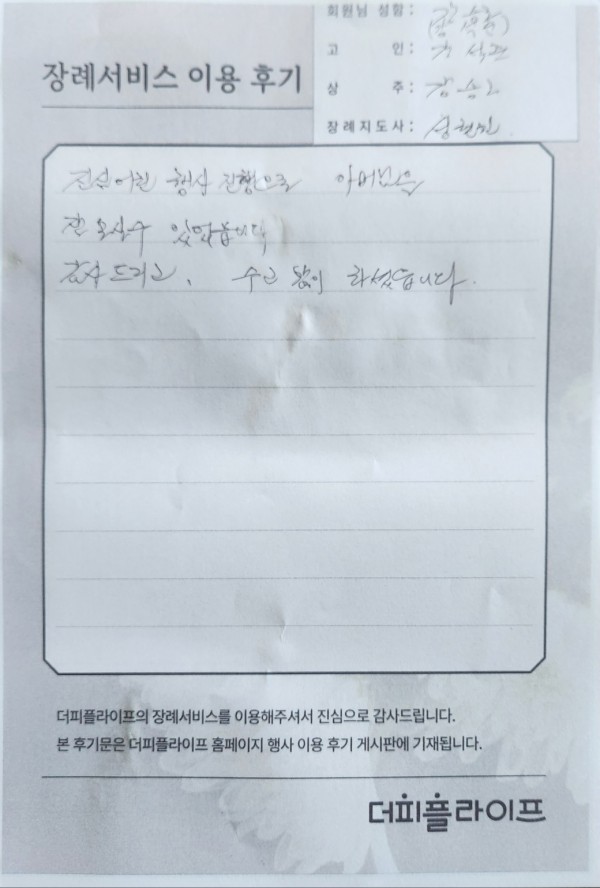 회원님 성함:
고 인:
상 주:
장례지도사: 성현민
장례서비스 이용 후기
진심어린 행사 진행으로 아버님을
잘 모실수 있었습니다
감사드리고, 수고 많이 하셨습니다.
더피플라이프의 장례서비스를 이용해주셔서 진심으로 감사드립니다.
본 후기문은 더피플라이프 홈페이지 행사 이용 후기 게시판에 기재됩니다.
더피플라이프